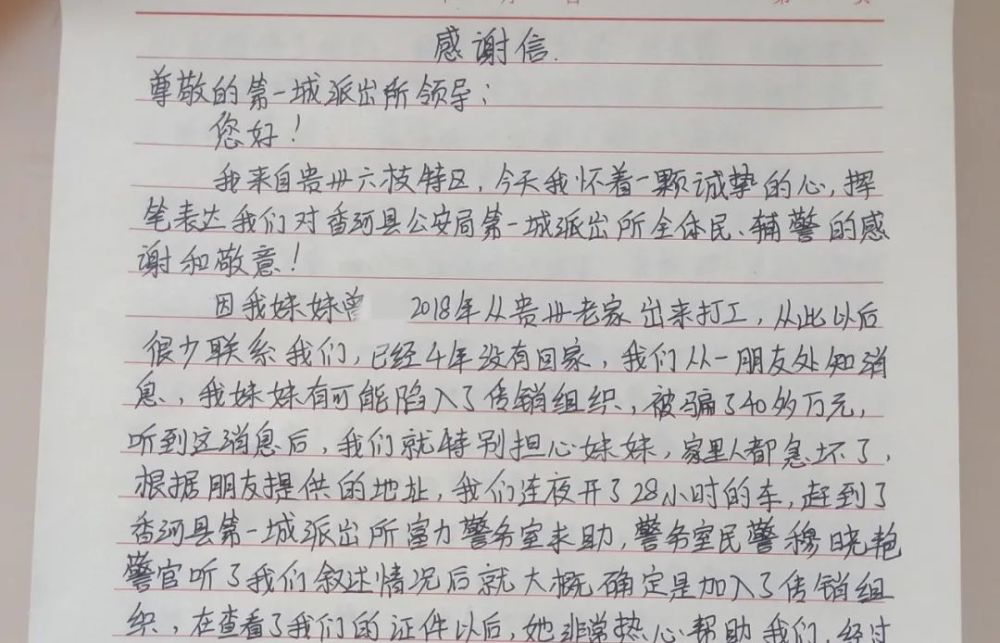 感谢信.
尊敬的第一城派出所领导：
您好！
我来自贵州六枝特区，今天我怀着一颗诚挚的心，挥
笔表达我们对香河县公安局第一城派出所全体民、辅警的感
谢和敬意！
因我妹妹曾 2018年从贵州老家出来打工，从此以后
很少联系我们，已经4年没有回家，我们从一朋友处知消
息，我妹妹有可能陷入了传销组织，被骗了40多万元，
听到这消息后，我们就特别担心妹妹，家里人都急坏了，
根据朋友提供的地址，我们连夜开了28小时的车，赶到了
香河县第一城派出所富力警务室求助，警务室民警穆晓艳
警官听了我们叙述情况后就大概确定是加入了传销组
织，在查看了我们的证件以后，她非常热心帮助我们，经过